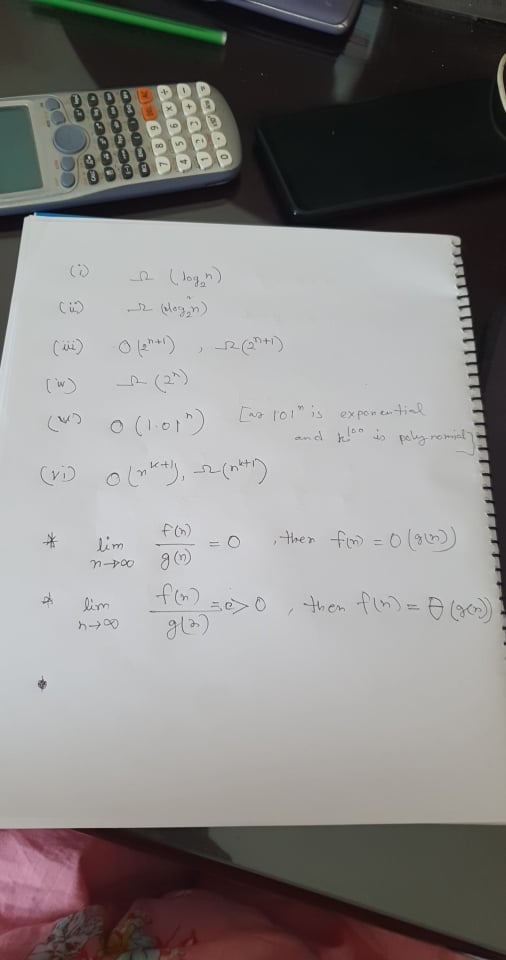 (i) Ω (log₂n)
(ii) Ω (nlog₂n)
(iii) O(2ⁿ⁺¹) , Ω(2ⁿ⁺¹)
(iv) Ω (2ⁿ)
(v) O (1.01ⁿ) [as 1.01ⁿ is exponential
and k¹⁰⁰ is polynomial]
(vi) O(nᵏ⁺¹), Ω(nᵏ⁺¹)
* lim n→∞ f(n)/g(n) = 0 , then f(n) = O(g(n))
* lim n→∞ f(n)/g(n) = c > 0 , then f(n) = θ(g(n))